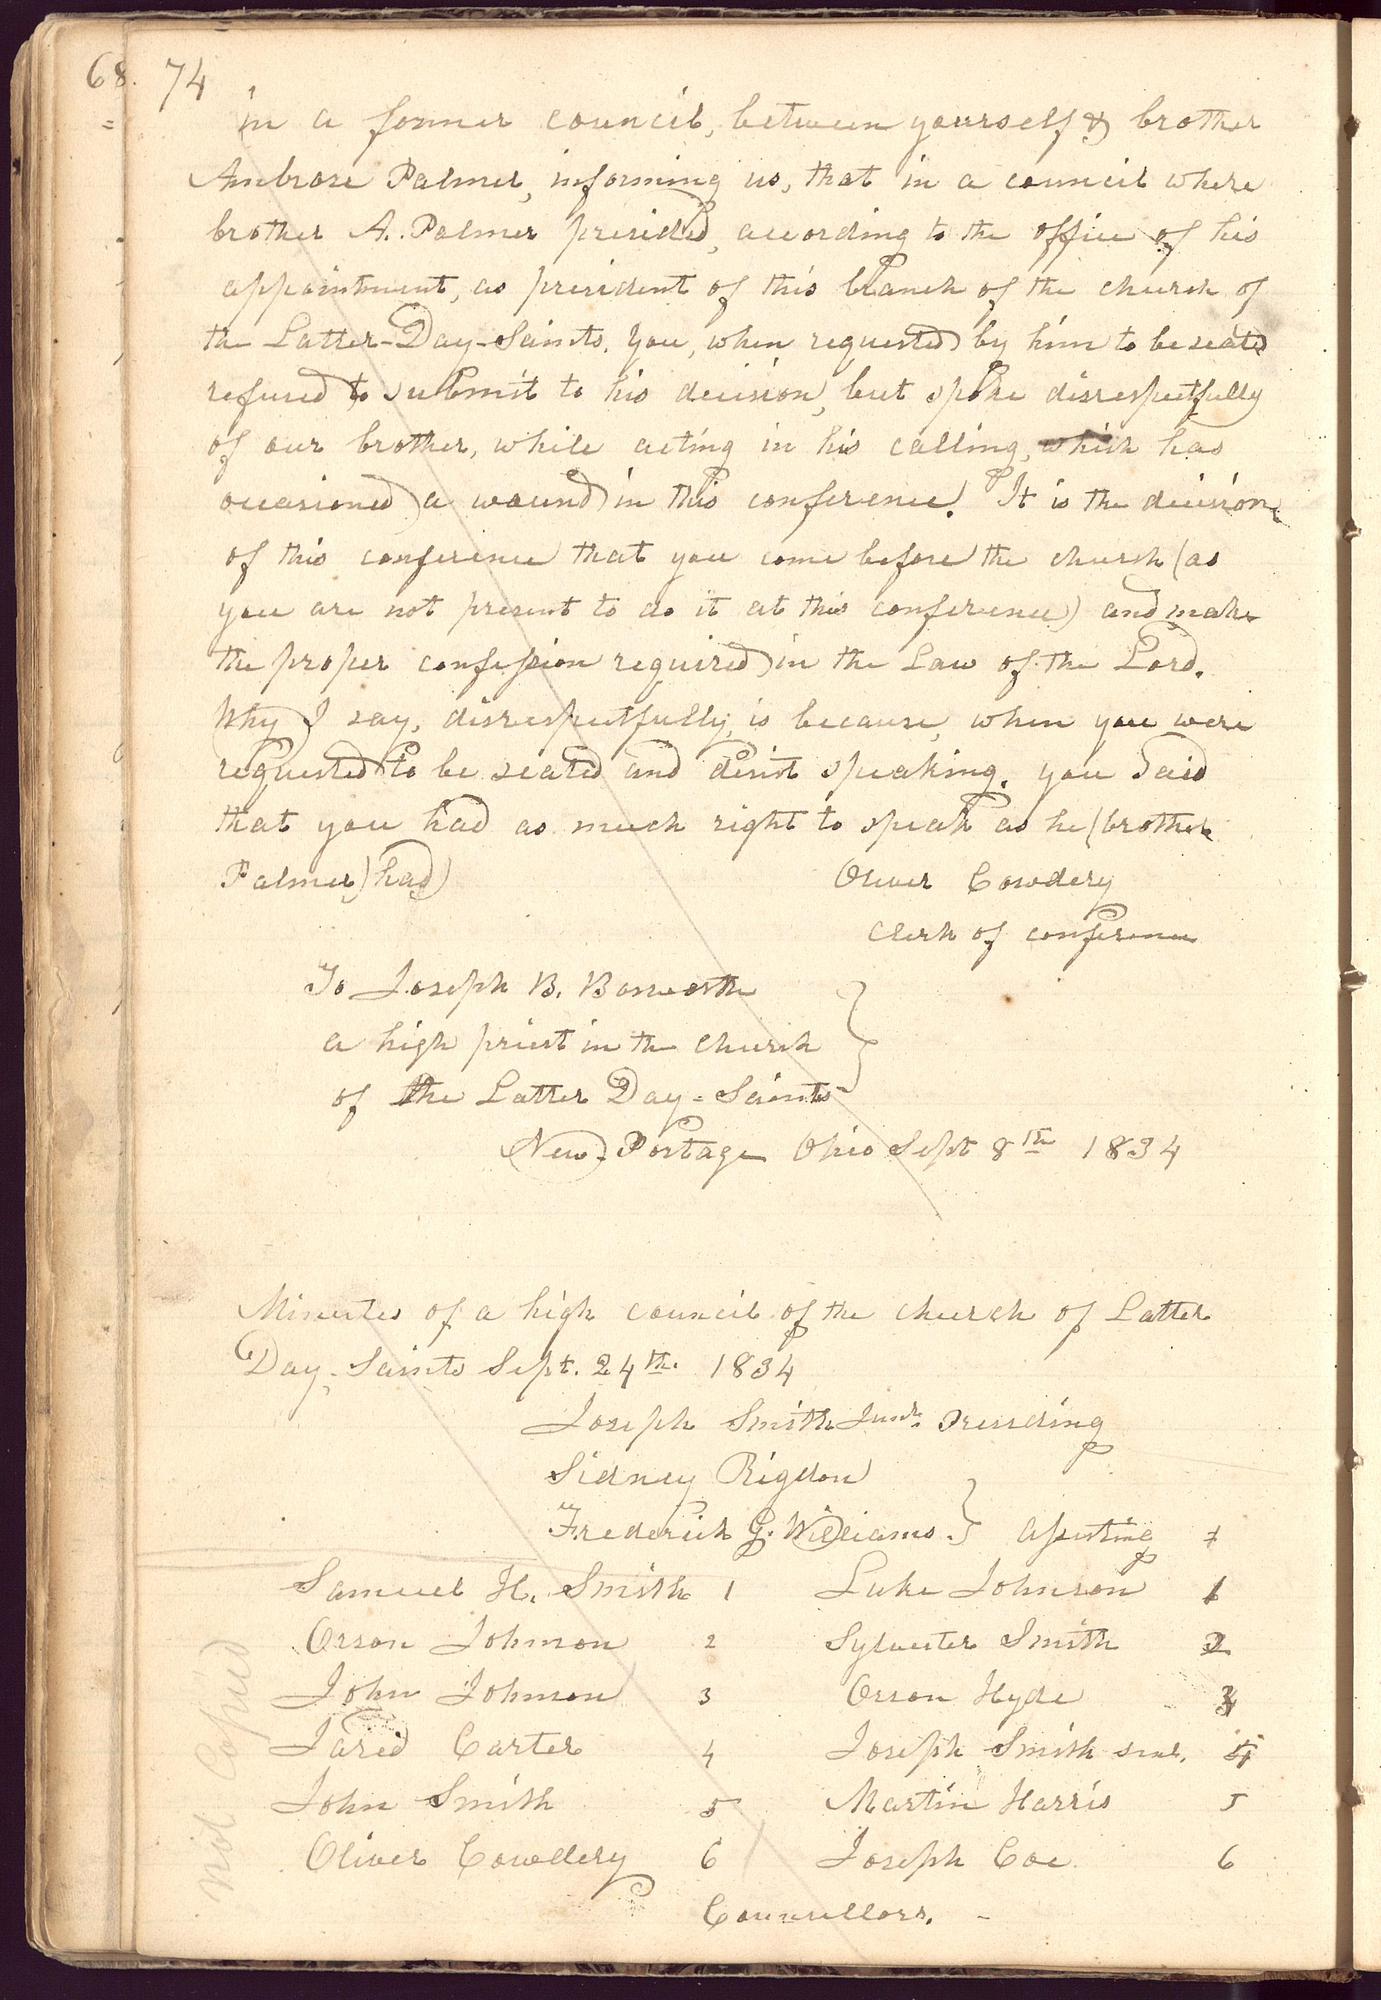 68. 74
in a former council, between yourself & brother
Ambrose Palmer, informing us, that in a council where
brother A. Palmer presided, according to the office of his
appointment, as president of this branch of the church of
the Latter-Day-Saints. You, when requested by him to be seated
refused to submit to his decision, but spoke disrespectfully
of our brother, while acting in his calling, which has
occasioned a wound in this conference. It is the decision
of this conference that you come before the church (as
you are not present to do it at this conference) and make
the proper confession required in the Law of the Lord.
Why I say, disrespectfully, is because, when you were
requested to be seated and desist speaking. you said
that you had as much right to speak as he (brother
Palmer) had)
Oliver Cowdery
Clerk of conference
To Joseph B. Bosworth
a high priest in the church
of the Latter Day-Saints
New-Portage Ohio Sept 8th 1834
Minutes of a high council of the church of Latter
Day-Saints Sept. 24th. 1834
Joseph Smith Junr. Presiding
Sidney Rigdon
Frederick G. Williams } Assisting
Samuel H. Smith 1 Luke Johnson 1
Orson Johnson 2 Sylvester Smith 2
John Johnson 3 Orson Hyde 3
Jared Carter 4 Joseph Smith senr. 4
John Smith 5 Martin Harris 5
Oliver Cowdery 6 Joseph Coe 6
Counsellors. -
Not Copied